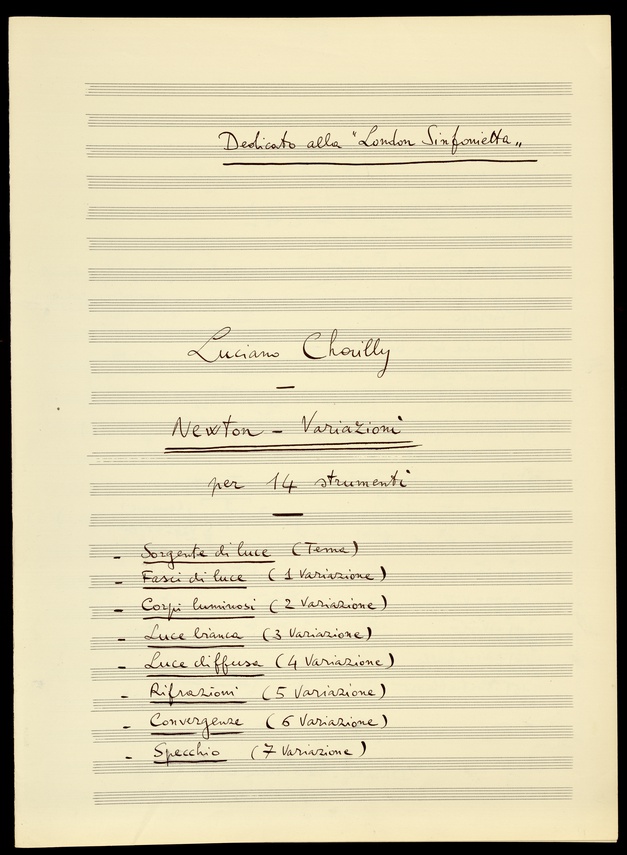 Dedicato alla "London Sinfonietta„
Luciano Chailly
Newton - Variazioni
per 14 strumenti
- Sorgente di luce (Tema)
- Fasci di luce (1 Variazione)
- Corpi luminosi (2 Variazione)
- Luce bianca (3 Variazione)
- Luce diffusa (4 Variazione)
- Rifrazioni (5 Variazione)
- Convergenze (6 Variazione)
- Specchio (7 Variazione)